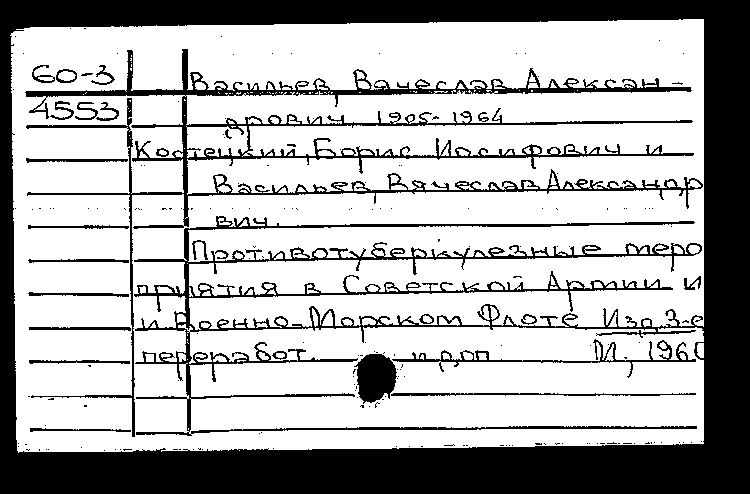 60-3 Васильев, Вячеслав Алексан-
4553 дрович, 1905-1964
Костецкий, Борис Иосифович и
Васильев, Вячеслав Александр
вич.
Противотуберкулезные меро
приятия в Советской Армии и
и Военно-Морском Флоте Изд. 3-е
переработ. и доп М., 1960